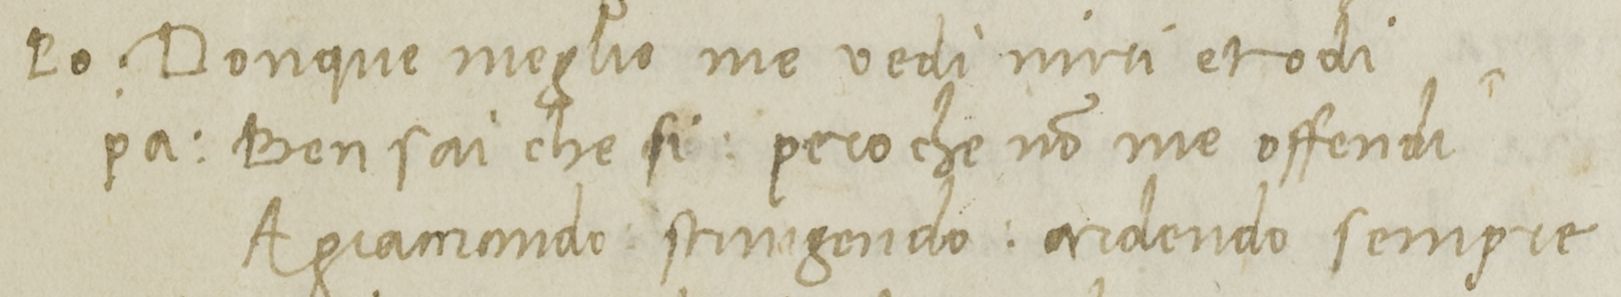 Po. Donque meglio me vedi miri et odi
pa: Ben sai che si: pero che nõ me offendi
Agiacciando: stringendo: ardendo sempre